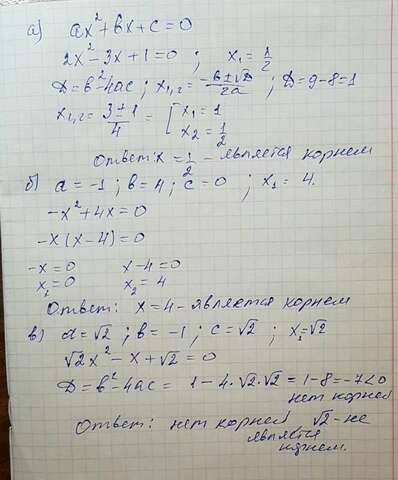 а) ax²+bx+c=0
2x²-3x+1=0 ; x₁=1/2
D=b²-4ac ; x₁,₂=(-b±√D)/2a ; D=9-8=1
x₁,₂=(3±1)/4=[x₁=1
x₂=1/2
Ответ: x=1/2 - является корнем
б) a=-1 ; b=4 ; c=0 ; x₁=4.
-x²+4x=0
-x(x-4)=0
-x=0 x-4=0
x₁=0 x₂=4
Ответ: x=4-является корнем
в) a=√2 ; b=-1 ; c=√2 ; x₁=√2
√2x²-x+√2=0
D=b²-4ac=1-4·√2·√2=1-8=-7<0
нет корней
Ответ: нет корней √2-не
является
корнем.